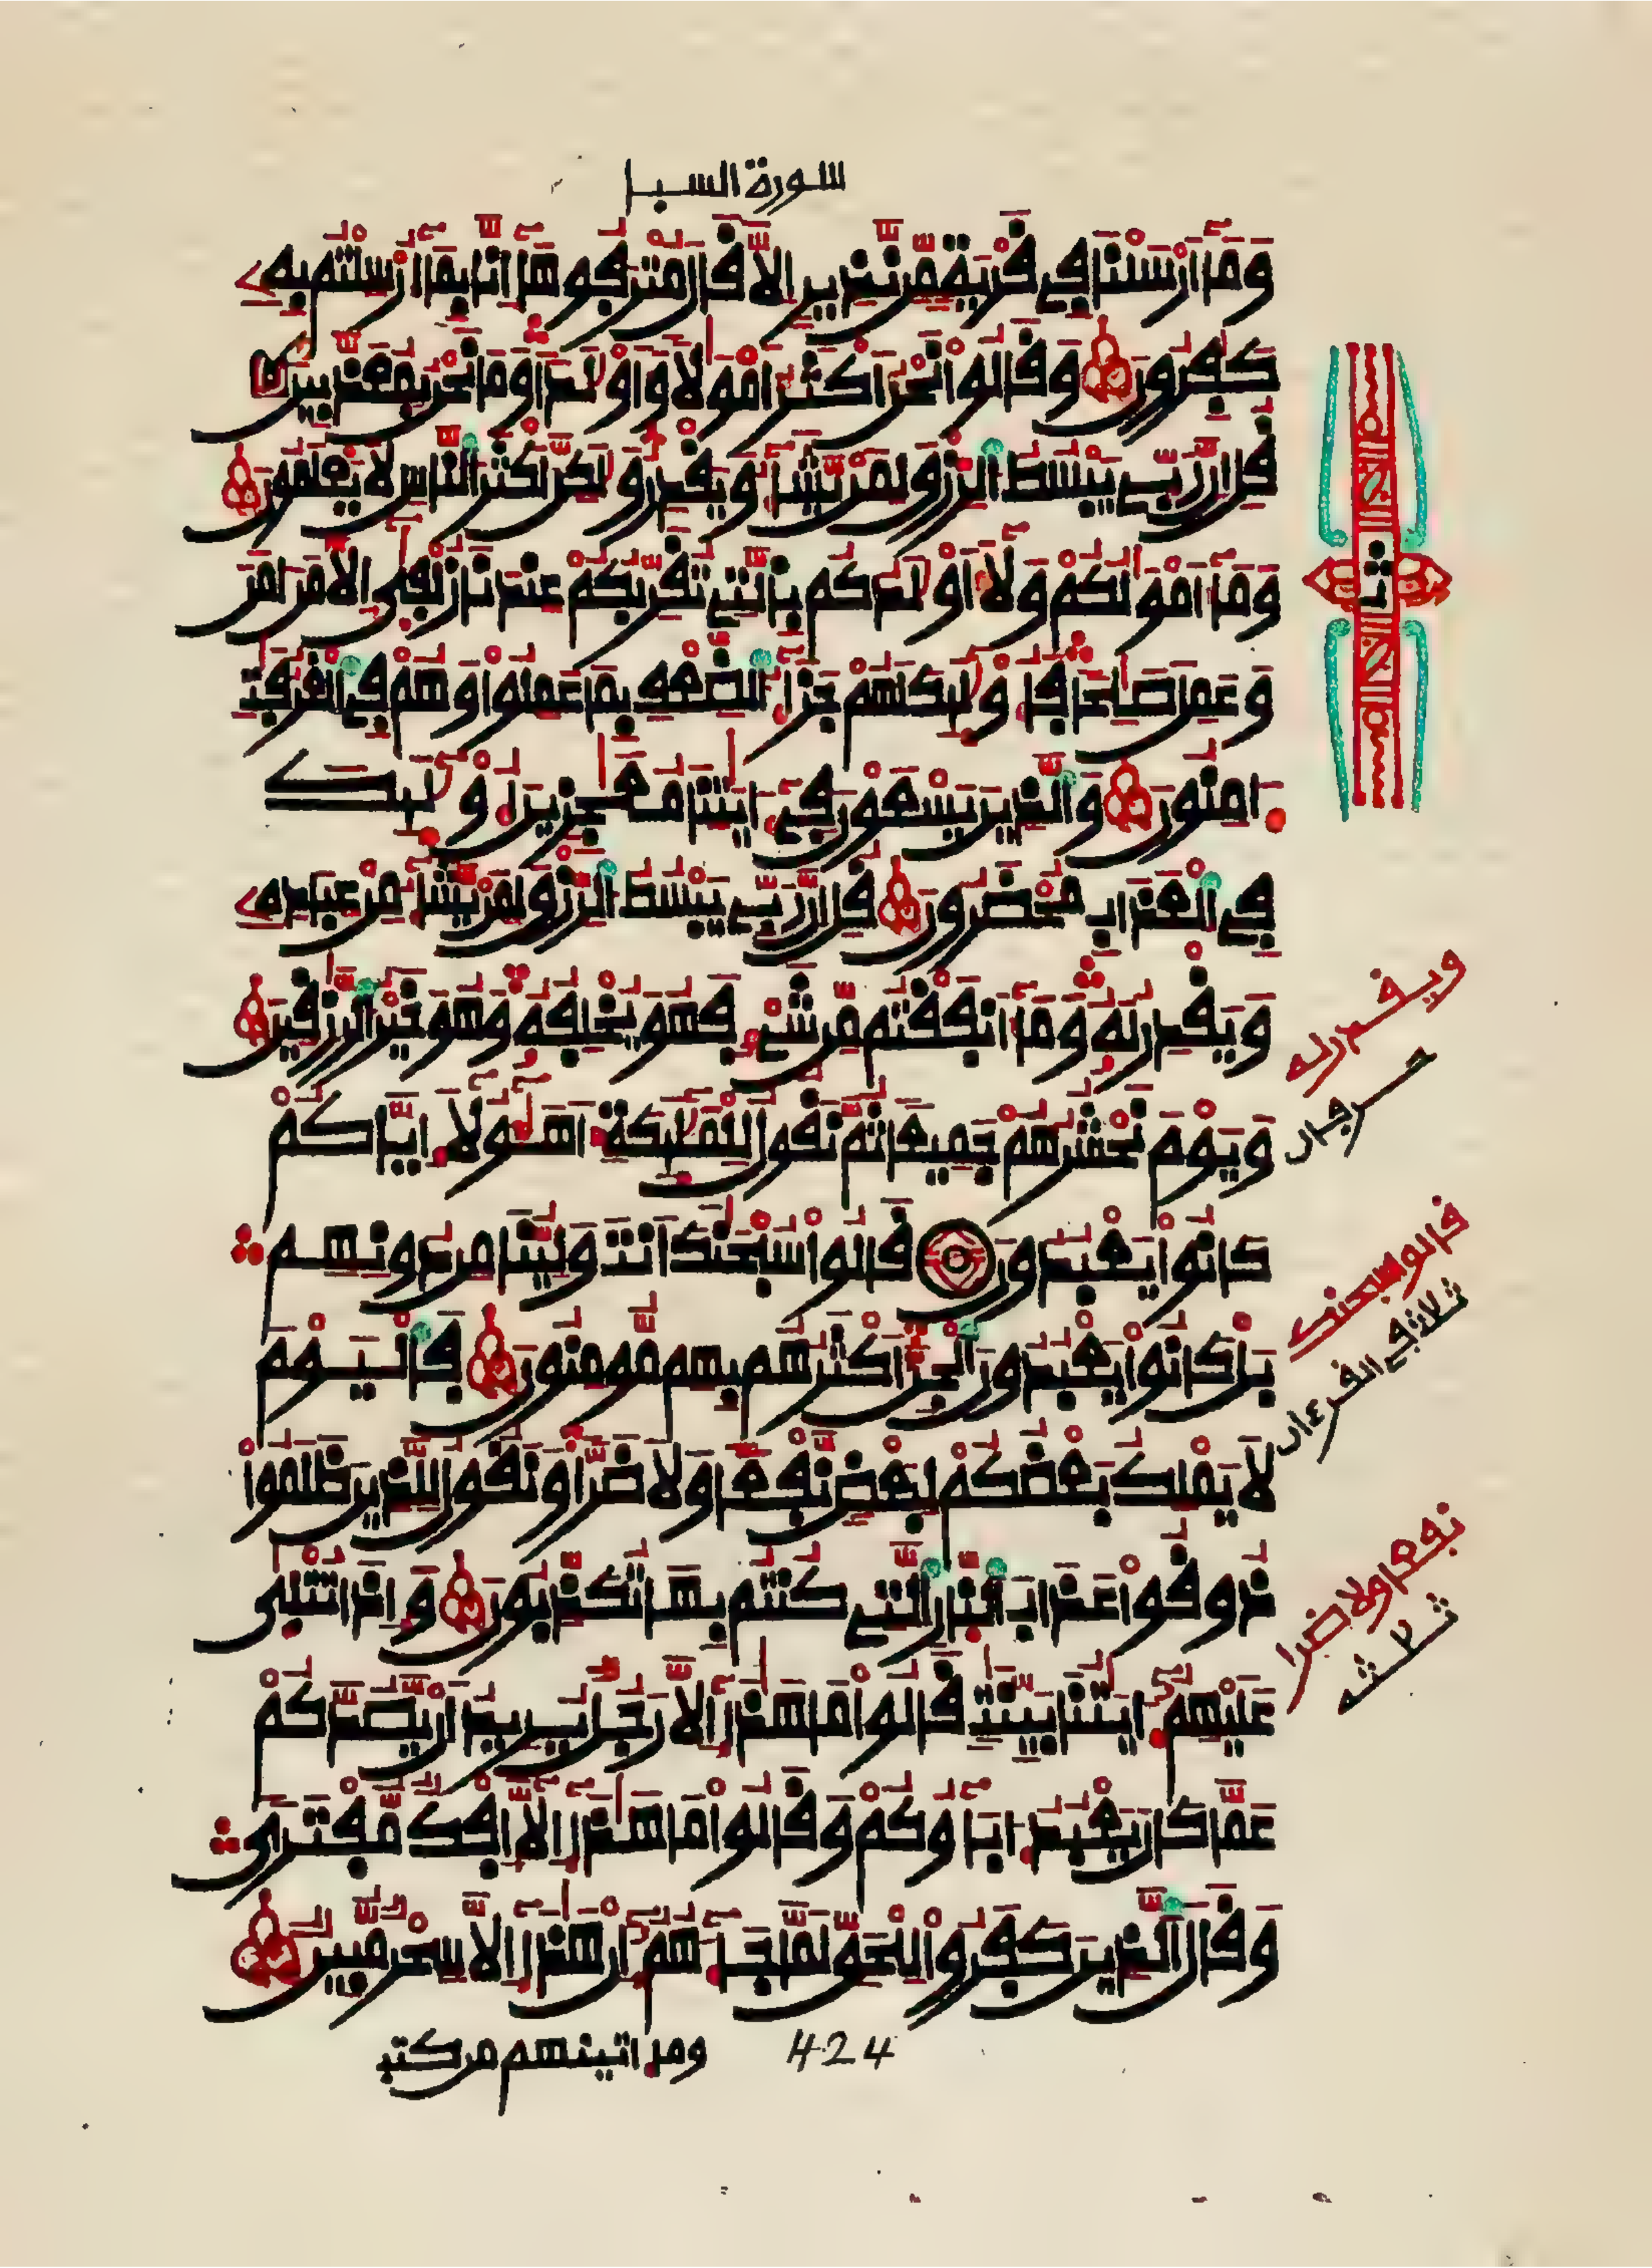 سورة السبإ
وَمَا أَرْسَلْنَا فِي قَرْيَةٍ مِّن نَّذِيرٍ اِلَّا قَالَ مُتْرَفُوهَا إِنَّا بِمَا أُرْسِلْتُم بِهِ
كَٰفِرُونَ وَقَالُوا نَحْنُ أَكْثَرُ أَمْوَٰلًا وَأَوْلَٰدًا وَمَا نَحْنُ بِمُعَذَّبِينَ
قُلِ انَّ رَبِّي يَبْسُطُ الرِّزْقَ لِمَنْ يَّشَآءُ وَيَقْدِرُ وَلَٰكِنَّ أَكْثَرَ النَّاسِ لَا يَعْلَمُونَ
وَمَا أَمْوَٰلُكُمْ وَلَا أَوْلَٰدُكُم بِالَّتِي تُقَرِّبُكُمْ عِندَنَا زُلْفَىٰ إِلَّا مَنَ امَنَ
وَعَمِلَ صَٰلِحًا فَأُوْلَٰئِكَ لَهُمْ جَزَآءُ الضِّعْفِ بِمَا عَمِلُوا وَهُمْ فِي الْغُرُفَٰتِ
ءَامِنُونَ وَالَّذِينَ يَسْعَوْنَ فِي ءَايَٰتِنَا مُعَٰجِزِينَ أُوْلَٰئِكَ
فِي الْعَذَابِ مُحْضَرُونَ قُلِ انَّ رَبِّي يَبْسُطُ الرِّزْقَ لِمَنْ يَّشَآءُ مِنْ عِبَادِهِ
وَيَقْدِرُ لَهُ وَمَا أَنفَقْتُم مِّن شَيْءٍ فَهُوَ يُخْلِفُهُ وَهُوَ خَيْرُ الرَّٰزِقِينَ
وَيَوْمَ نَحْشُرُهُمْ جَمِيعًا ثُمَّ نَقُولُ لِلْمَلَٰئِكَةِ أَهَٰؤُلَآءِ ايَّاكُمْ
كَانُوا يَعْبُدُونَ قَالُوا سُبْحَٰنَكَ أَنتَ وَلِيُّنَا مِن دُونِهِم
بَلْ كَانُوا يَعْبُدُونَ الْجِنَّ أَكْثَرُهُم بِهِم مُّومِنُونَ فَالْيَوْمَ
لَا يَمْلِكُ بَعْضُكُمْ لِبَعْضٍ نَّفْعًا وَلَا ضَرًّا وَنَقُولُ لِلَّذِينَ ظَلَمُوا
ذُوقُوا عَذَابَ النَّارِ الَّتِي كُنتُم بِهَا تُكَذِّبُونَ وَإِذَا تُتْلَىٰ
عَلَيْهِمُ ءَايَٰتُنَا بَيِّنَٰتٍ قَالُوا مَا هَٰذَا إِلَّا رَجُلٌ يُرِيدُ أَنْ يَّصُدَّكُمْ
عَمَّا كَانَ يَعْبُدُ ءَابَآؤُكُمْ وَقَالُوا مَا هَٰذَا إِلَّا إِفْكٌ مُّفْتَرًى
وَقَالَ الَّذِينَ كَفَرُوا لِلْحَقِّ لَمَّا جَآءَهُمُ إِنْ هَٰذَا إِلَّا سِحْرٌ مُّبِينٌ
وما اتينهم من كتب
424
ثمن
ويقدر له
حرفان
قالوا سبحنك
ثلاث في القرءان
نفعا ولا ضرا
ثلثة